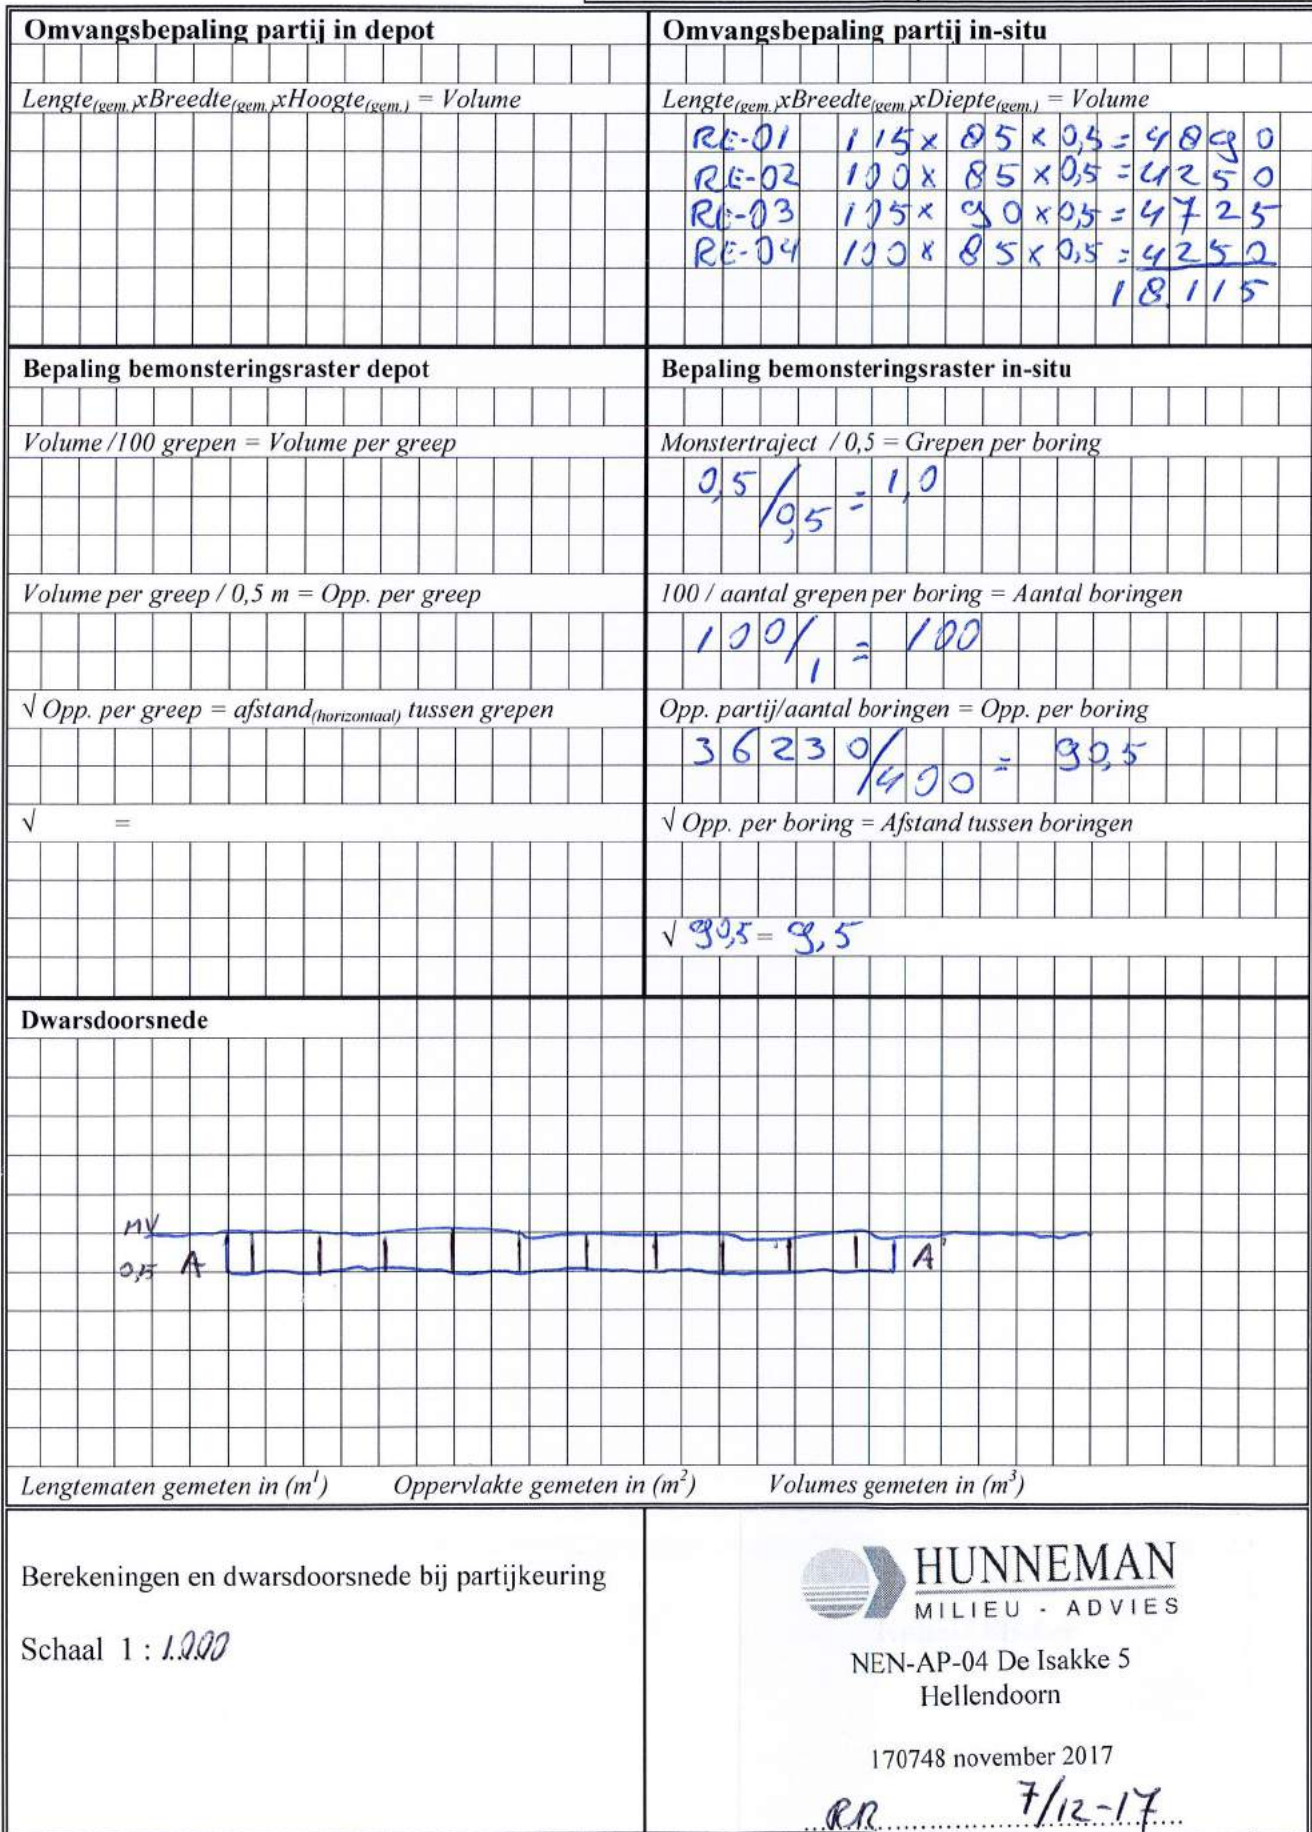 Omvangsbepaling partij in depot
Lengte(gem.)xBreedte(gem.)xHoogte(gem.) = Volume
Omvangsbepaling partij in-situ
Lengte(gem.)xBreedte(gem.)xDiepte(gem.) = Volume
RE-01 115 x 85 x 0,5 = 4890
RE-02 100 x 85 x 0,5 = 4250
RE-03 105 x 90 x 0,5 = 4725
RE-04 100 x 85 x 0,5 = 4250
18.115
Bepaling bemonsteringsraster depot
Volume /100 grepen = Volume per greep
Volume per greep / 0,5 m = Opp. per greep
√ Opp. per greep = afstand(horizontaal) tussen grepen
√ =
Bepaling bemonsteringsraster in-situ
Monstertraject / 0,5 = Grepen per boring
0,5/0,5 = 1,0
100 / aantal grepen per boring = Aantal boringen
100/1 = 100
Opp. partij/aantal boringen = Opp. per boring
36230/400 = 90,5
√ Opp. per boring = Afstand tussen boringen
√ 90,5 = 9,5
Dwarsdoorsnede
MV
0,5 A A'
Lengtematen gemeten in (m¹) Oppervlakte gemeten in (m²) Volumes gemeten in (m³)
Berekeningen en dwarsdoorsnede bij partijkeuring
Schaal 1 : 1.000
HUNNEMAN
MILIEU - ADVIES
NEN-AP-04 De Isakke 5
Hellendoorn
170748 november 2017
RR 7/12-17